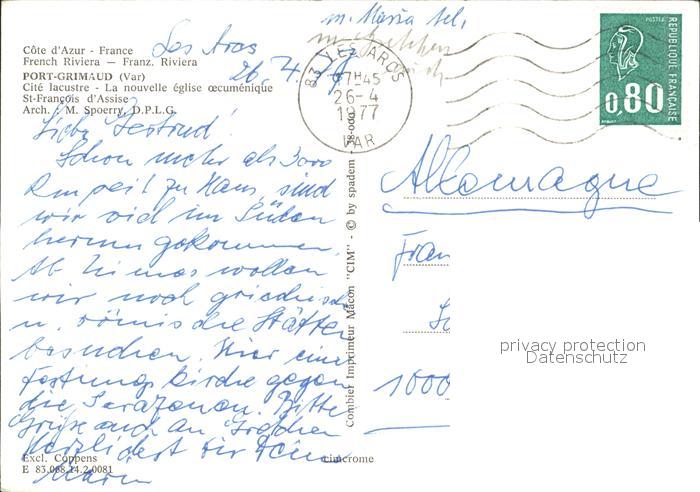 m. Maria tel,
Côte d'Azur - France
French Riviera — Franz. Riviera
PORT-GRIMAUD (Var)
Cité lacustre - La nouvelle église œcuménique
St-François d'Assise
Arch. : M. Spoerry, D.P.L.G.
Les Arcs
26. 4. 77
83 LES ARCS
17H45
26-4
1977
VAR
POSTES
REPUBLIQUE FRANÇAISE
0,80
Schon mehr als 3000
km seit zu Haus, sind
wir viel im Süden
herum gekommen.
wollen
wir noch griechische
u. römische Stätten
besuchen. Hier eine
Festungskirche gegen
die Sarazenen. Bitte
Grüße auch an
Herzlichst
Allemagne
Fran
1000
privacy protection
Datenschutz
Combier Imprimeur Mâcon "CIM" - © by spadem -
Excl. Coppens
E 83.068.14.2.0081
cimcrome